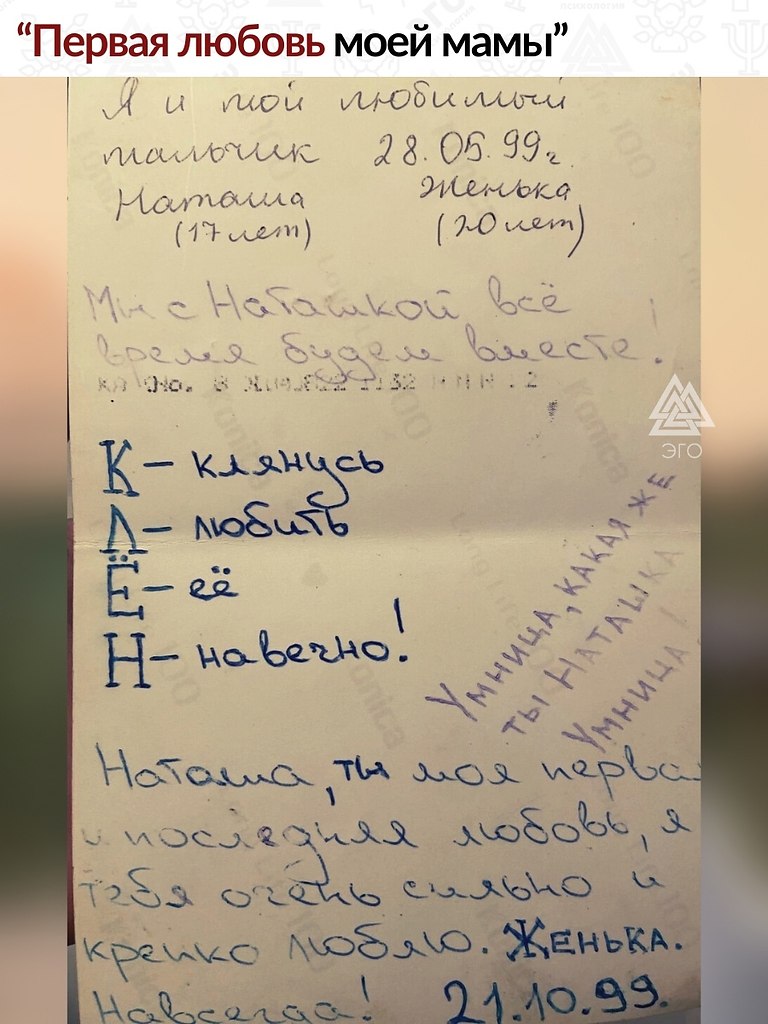 “Первая любовь моей мамы”
Я и мой любимый
мальчик 28.05.99г.
Наташа Женька
(17 лет) (20 лет)
Мы с Наташкой всё
время будем вместе!
К – клянусь
Л – любить
Ё – её
Н – навечно!
Умница, какая же
ты Наташка
Умница!
Наташа, ты моя первая
и последняя любовь, я
тебя очень сильно и
крепко люблю. Женька.
Навсегда! 21.10.99.
ЭГО